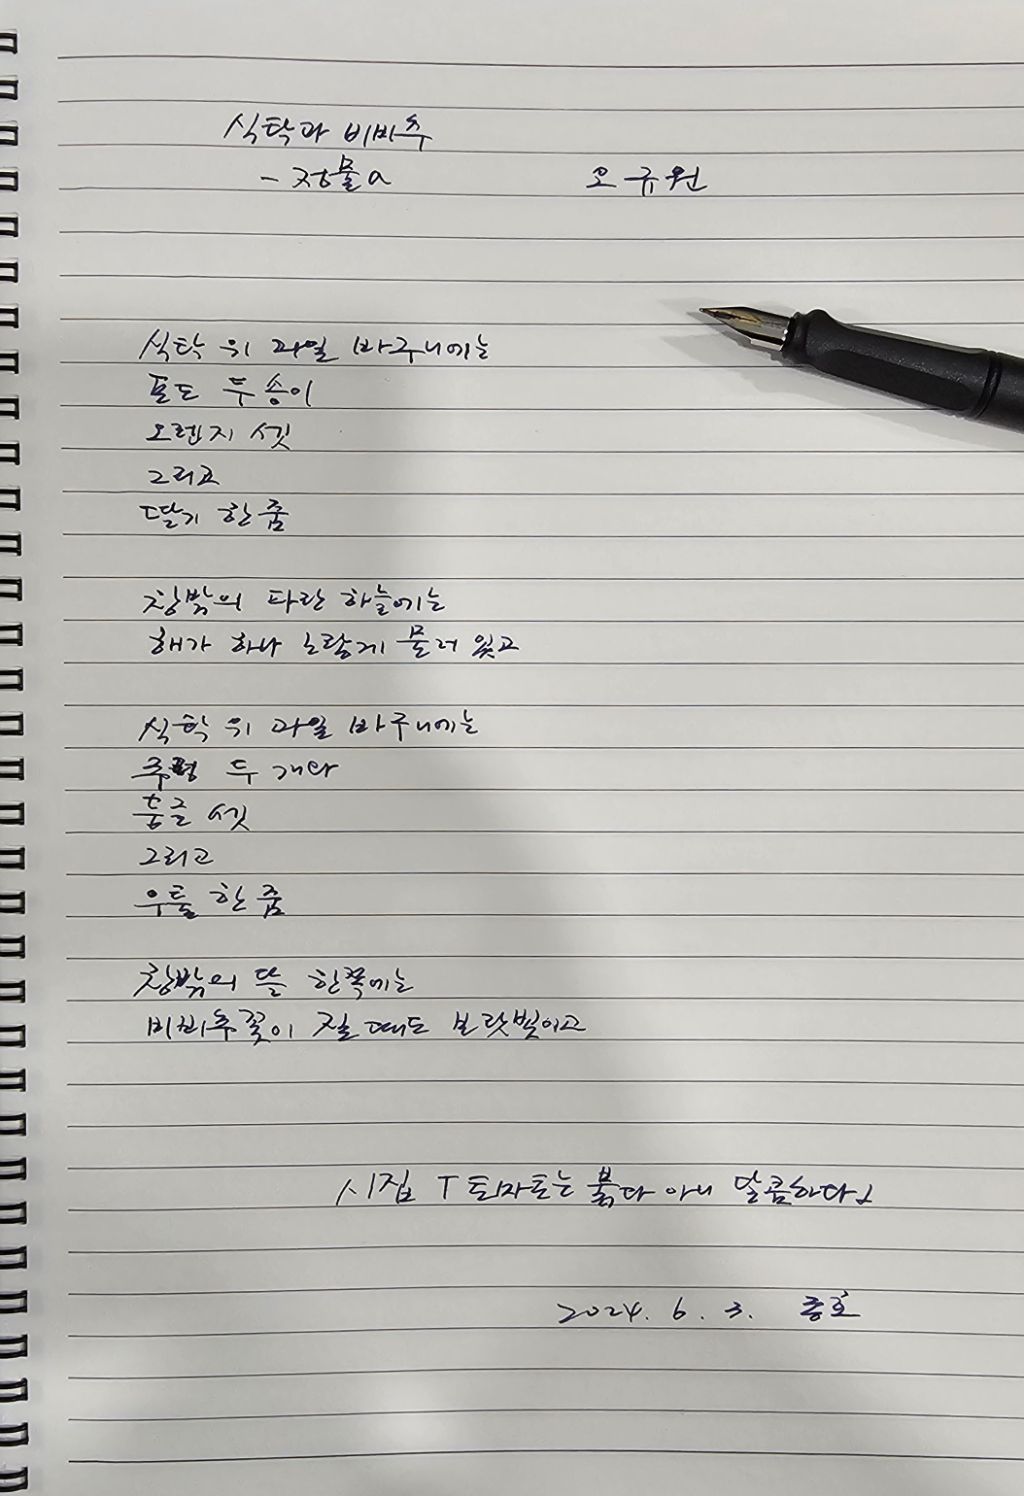 식탁과 비비추
- 정물a 오규원
식탁 위 과일 바구니에는
포도 두 송이
오렌지 셋
그리고
딸기 한 줌
창밖의 파란 하늘에는
해가 하나 노랗게 물러 있고
식탁 위 과일 바구니에는
주렁 두 개와
둥글 셋
그리고
우툴 한 줌
창밖의 뜰 한쪽에는
비비추꽃이 질 때도 보랏빛이고
시집 「토마토는 붉다 아니 달콤하다」
2024. 6. 3. 종호